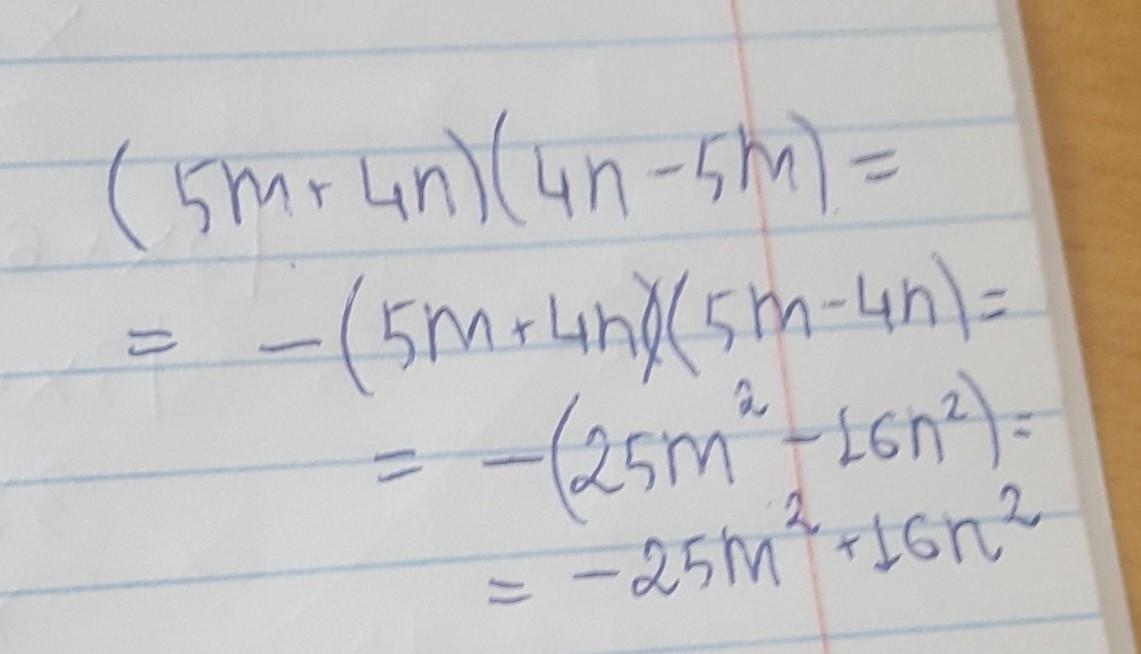 (5m+4n)(4n-5m)=
= -(5m+4n)(5m-4n)=
= -(25m²-16n²)=
= -25m²+16n²